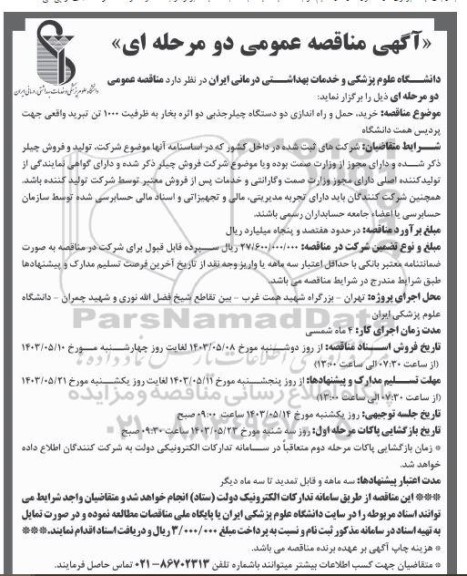 «آگهی مناقصه عمومی دو مرحله ای»
دانشگاه علوم پزشکی و خدمات بهداشتی درمانی ایران
دانشگاه علوم پزشکی و خدمات بهداشتی درمانی ایران در نظر دارد مناقصه عمومی
دو مرحله ای ذیل را برگزار نماید:
موضوع مناقصه: خرید، حمل و راه اندازی دو دستگاه چیلرجذبی دو اثره بخار به ظرفیت ۱۰۰۰ تن تبرید واقعی جهت
پردیس همت دانشگاه
شرایط متقاضیان: شرکت های ثبت شده در داخل کشور که در اساسنامه آنها موضوع شرکت، تولید و فروش چیلر
ذکر شده و دارای مجوز از وزارت صمت بوده ویا موضوع شرکت فروش چیلر ذکر شده و دارای گواهی نمایندگی از
تولیدکننده اصلی دارای مجوز وزارت صمت وگارانتی و خدمات پس از فروش معتبر توسط شرکت تولید کننده باشد.
همچنین شرکت کنندگان باید دارای تجربه مدیریتی، مالی و تجهیزاتی و اسناد مالی حسابرسی شده توسط سازمان
حسابرسی یا اعضاء جامعه حسابداران رسمی باشند.
مبلغ برآورد مناقصه: درحدود هفتصد و پنجاه میلیارد ریال
مبلغ و نوع تضمین شرکت در مناقصه: ۲۷/۶۰۰/۰۰۰/۰۰۰ ریال سپرده قابل قبول برای شرکت در مناقصه به صورت
ضمانتنامه معتبر بانکی با حداقل اعتبار سه ماهه یا واریز وجه نقد از تاریخ آخرین فرصت تسلیم مدارک و پیشنهادها
طبق شرایط مندرج در شرایط مناقصه می باشد.
محل اجرای پروژه: تهران - بزرگراه شهید همت غرب - بین تقاطع شیخ فضل الله نوری و شهید چمران - دانشگاه
علوم پزشکی ایران
مدت زمان اجرای کار: ۴ ماه شمسی
تاریخ فروش اسناد مناقصه: از روز دوشنبه مورخ ۱۴۰۳/۰۵/۰۸ لغایت روز چهارشنبه مورخ ۱۴۰۳/۰۵/۱۰
(از ساعت ۰۷:۳۰ الی ساعت ۱۳:۰۰)
مهلت تسلیم مدارک و پیشنهادها: از روز پنجشنبه مورخ ۱۴۰۳/۰۵/۱۱ لغایت روز یکشنبه مورخ ۱۴۰۳/۰۵/۲۱
(از ساعت ۰۷:۳۰ الی ساعت ۱۳:۰۰)
تاریخ جلسه توجیهی: روز یکشنبه مورخ ۱۴۰۳/۰۵/۱۴ ساعت ۰۹:۰۰ صبح
تاریخ بازگشایی پاکات مرحله اول: روز سه شنبه مورخ ۱۴۰۳/۰۵/۲۳ ساعت ۰۹:۳۰ صبح
* زمان بازگشایی پاکات مرحله دوم متعاقباً در سامانه تدارکات الکترونیکی دولت به شرکت کنندگان اطلاع داده
خواهد شد.
مدت اعتبار پیشنهادها: سه ماهه و قابل تمدید تا سه ماه دیگر
*** این مناقصه از طریق سامانه تدارکات الکترونیک دولت (ستاد) انجام خواهد شد و متقاضیان واجد شرایط می
توانند اسناد مربوطه را در سایت دانشگاه علوم پزشکی ایران یا پایگاه ملی مناقصات مطالعه نموده و در صورت تمایل
به تهیه اسناد در سامانه مذکور ثبت نام و نسبت به پرداخت مبلغ ۳/۰۰۰/۰۰۰ ریال و دریافت اسناد اقدام نمایند.***
* هزینه چاپ آگهی بر عهده برنده مناقصه می باشد.
* متقاضیان جهت کسب اطلاعات بیشتر میتوانند باشماره تلفن ۸۶۷۰۲۳۱۳-۰۲۱ تماس حاصل فرمایند.
ParsNamadData